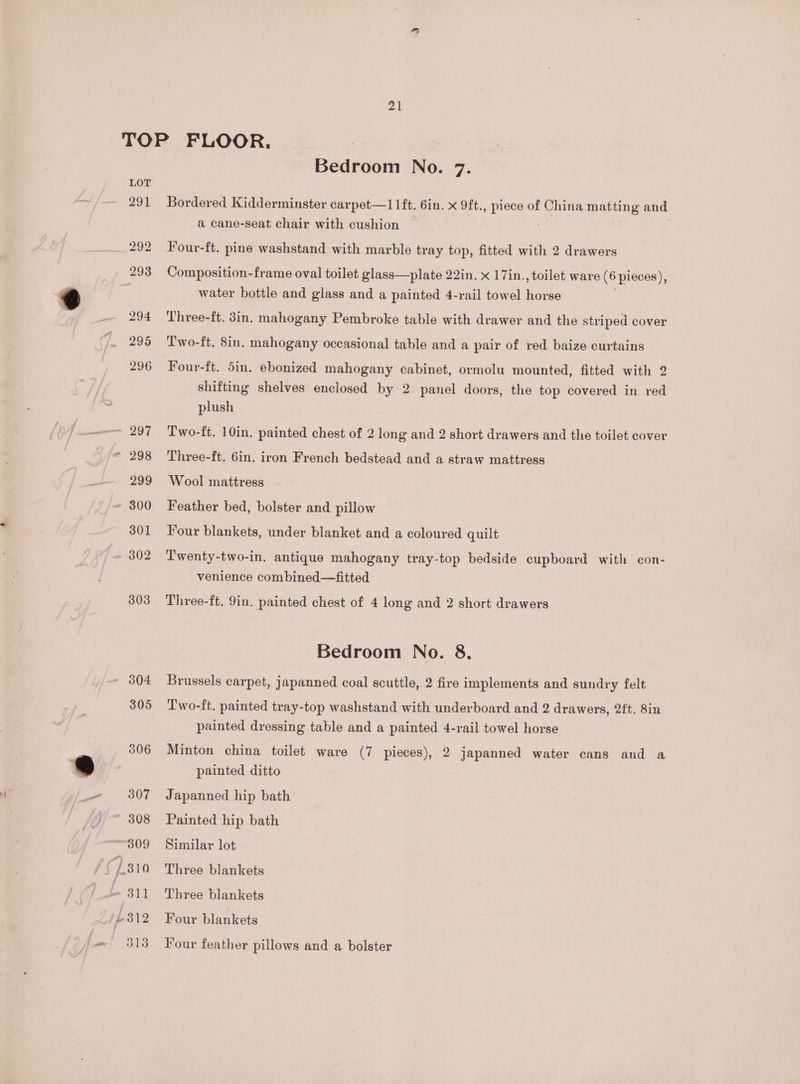 21
TOP FLOOR.
Bedroom No. 7.
LOT
291 Bordered Kidderminster carpet—11ft. 6in. × 9ft., piece of China matting and
a cane-seat chair with cushion
292 Four-ft. pine washstand with marble tray top, fitted with 2 drawers
293 Composition-frame oval toilet glass—plate 22in. × 17in., toilet ware (6 pieces),
water bottle and glass and a painted 4-rail towel horse
294 Three-ft. 3in. mahogany Pembroke table with drawer and the striped cover
295 Two-ft. 8in. mahogany occasional table and a pair of red baize curtains
296 Four-ft. 5in. ebonized mahogany cabinet, ormolu mounted, fitted with 2
shifting shelves enclosed by 2 panel doors, the top covered in red
plush
297 Two-ft. 10in. painted chest of 2 long and 2 short drawers and the toilet cover
298 Three-ft. 6in. iron French bedstead and a straw mattress
299 Wool mattress
300 Feather bed, bolster and pillow
301 Four blankets, under blanket and a coloured quilt
302 Twenty-two-in. antique mahogany tray-top bedside cupboard with con-
venience combined—fitted
303 Three-ft. 9in. painted chest of 4 long and 2 short drawers
Bedroom No. 8.
304 Brussels carpet, japanned coal scuttle, 2 fire implements and sundry felt
305 Two-ft. painted tray-top washstand with underboard and 2 drawers, 2ft. 8in
painted dressing table and a painted 4-rail towel horse
306 Minton china toilet ware (7 pieces), 2 japanned water cans and a
painted ditto
307 Japanned hip bath
308 Painted hip bath
309 Similar lot
310 Three blankets
311 Three blankets
312 Four blankets
313 Four feather pillows and a bolster